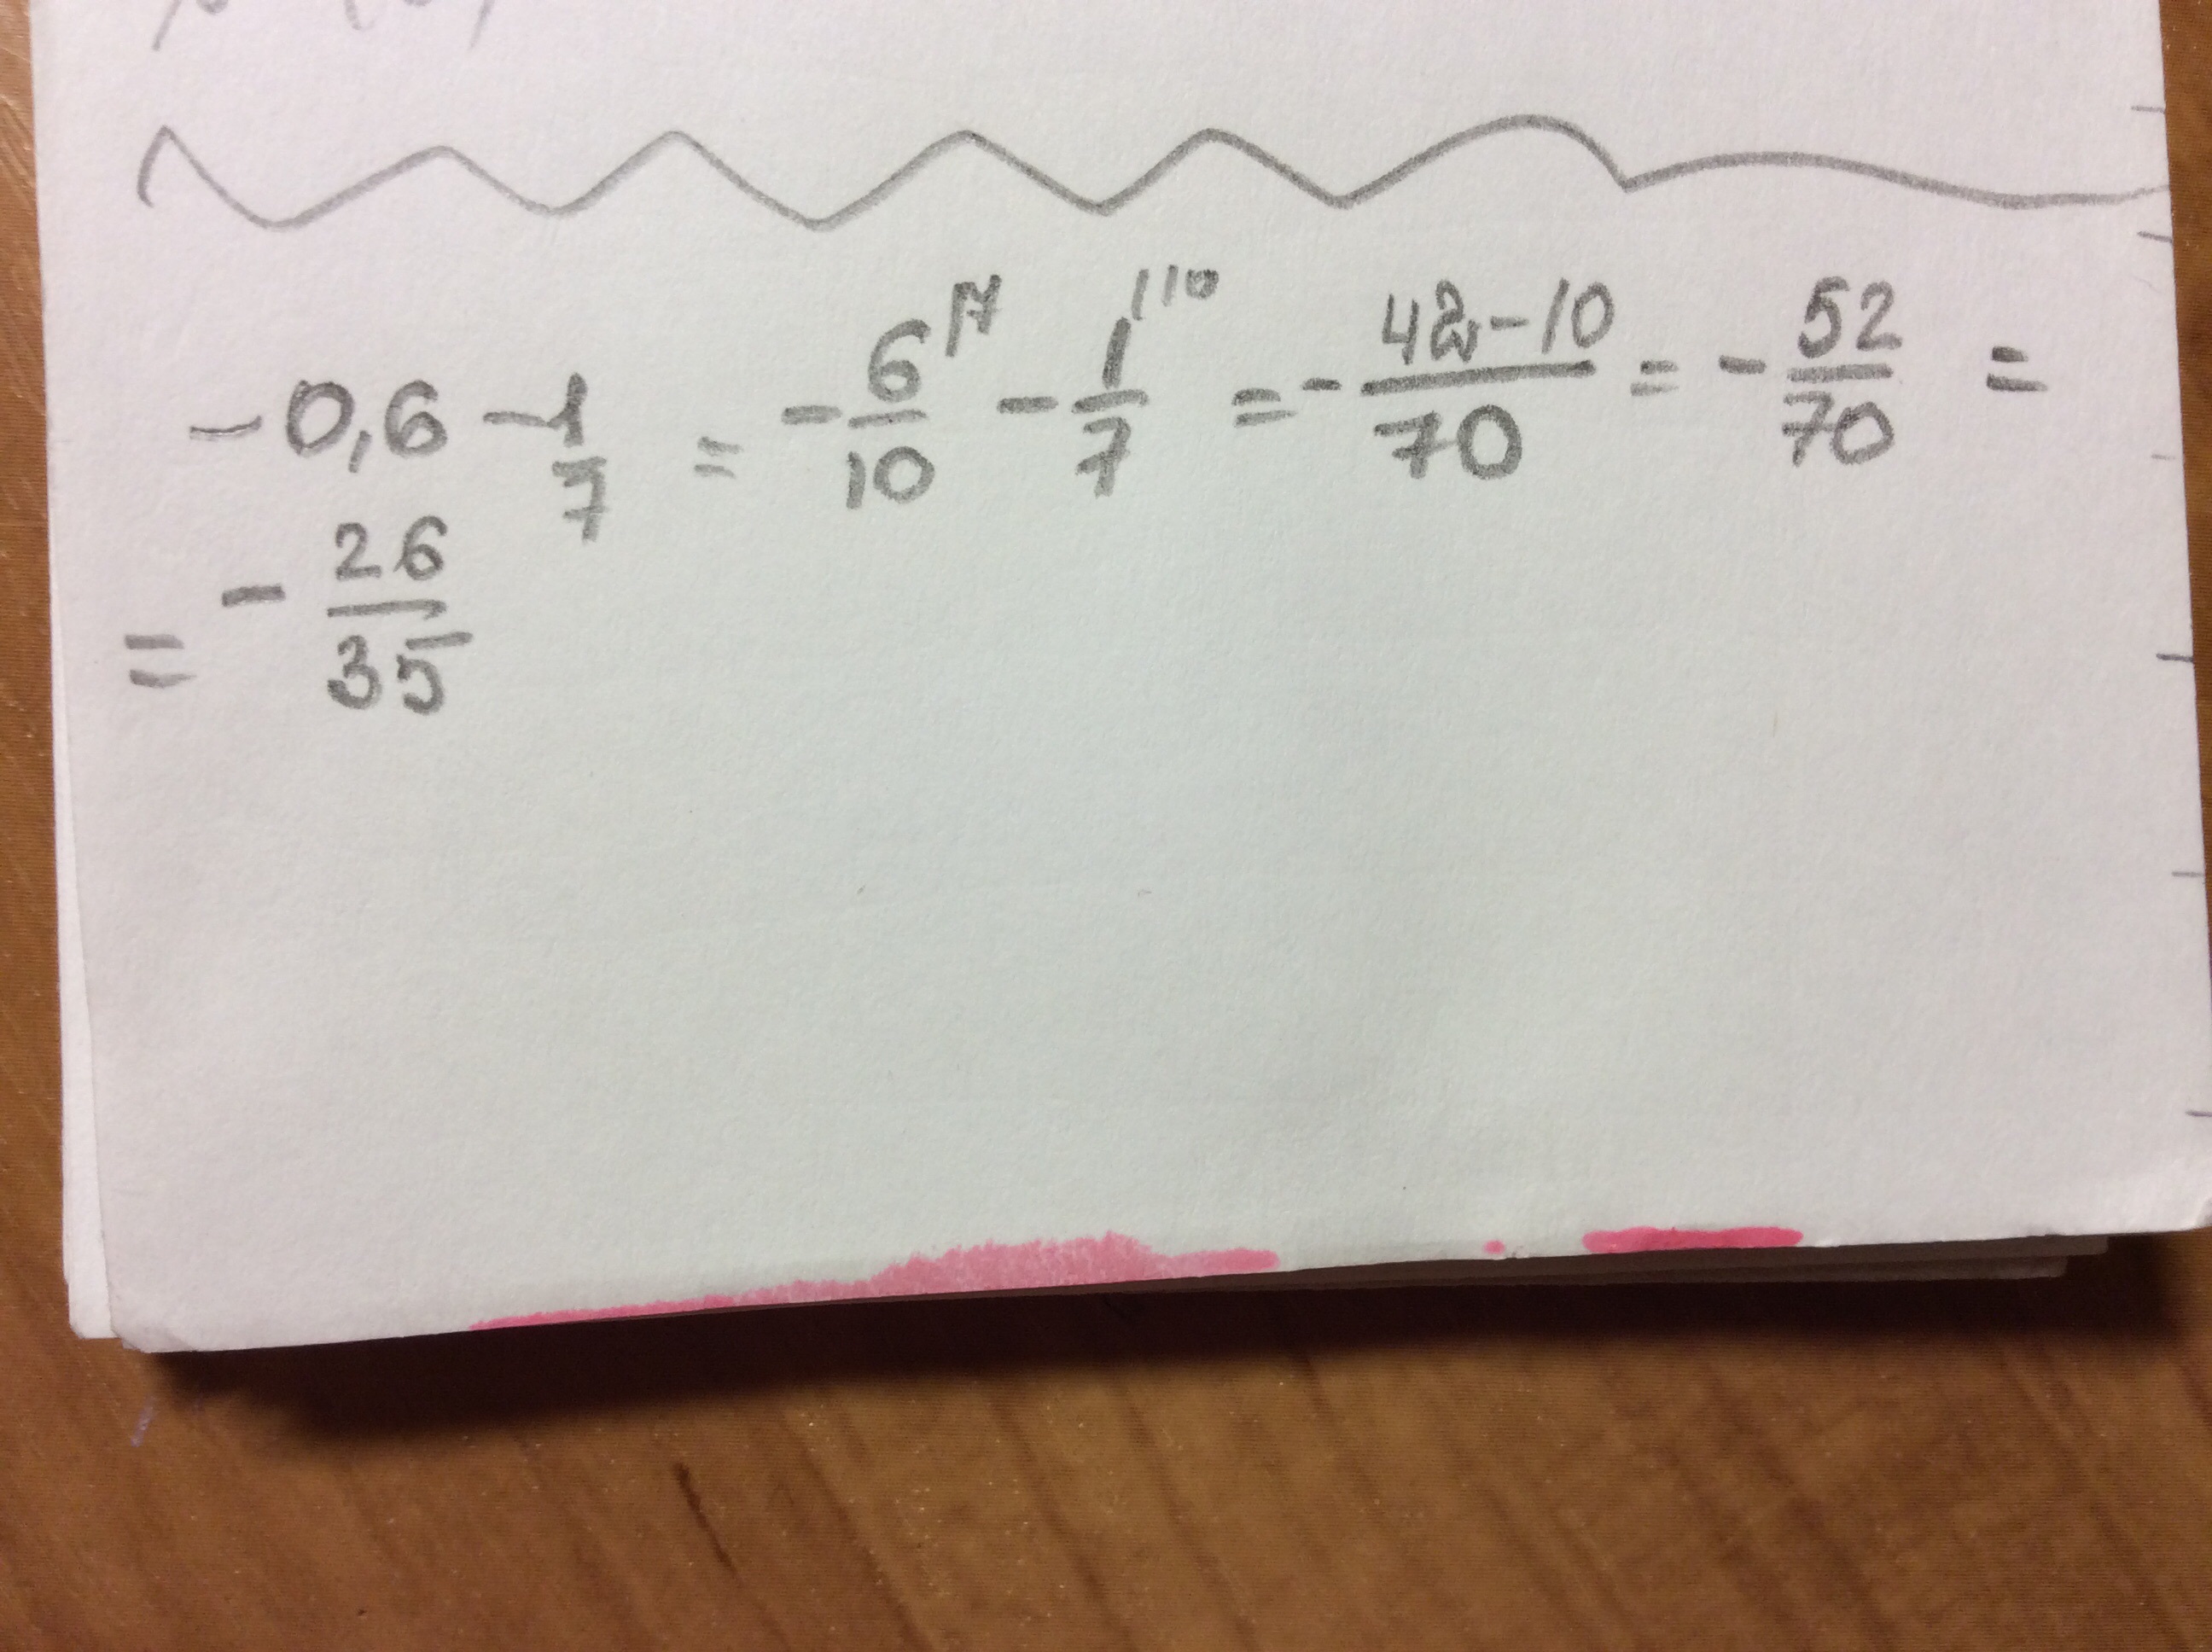 -0,6 - 1/7 = - 6/10 |7 - 1/7 |10 = - 42-10/70 = - 52/70 =
= - 26/35